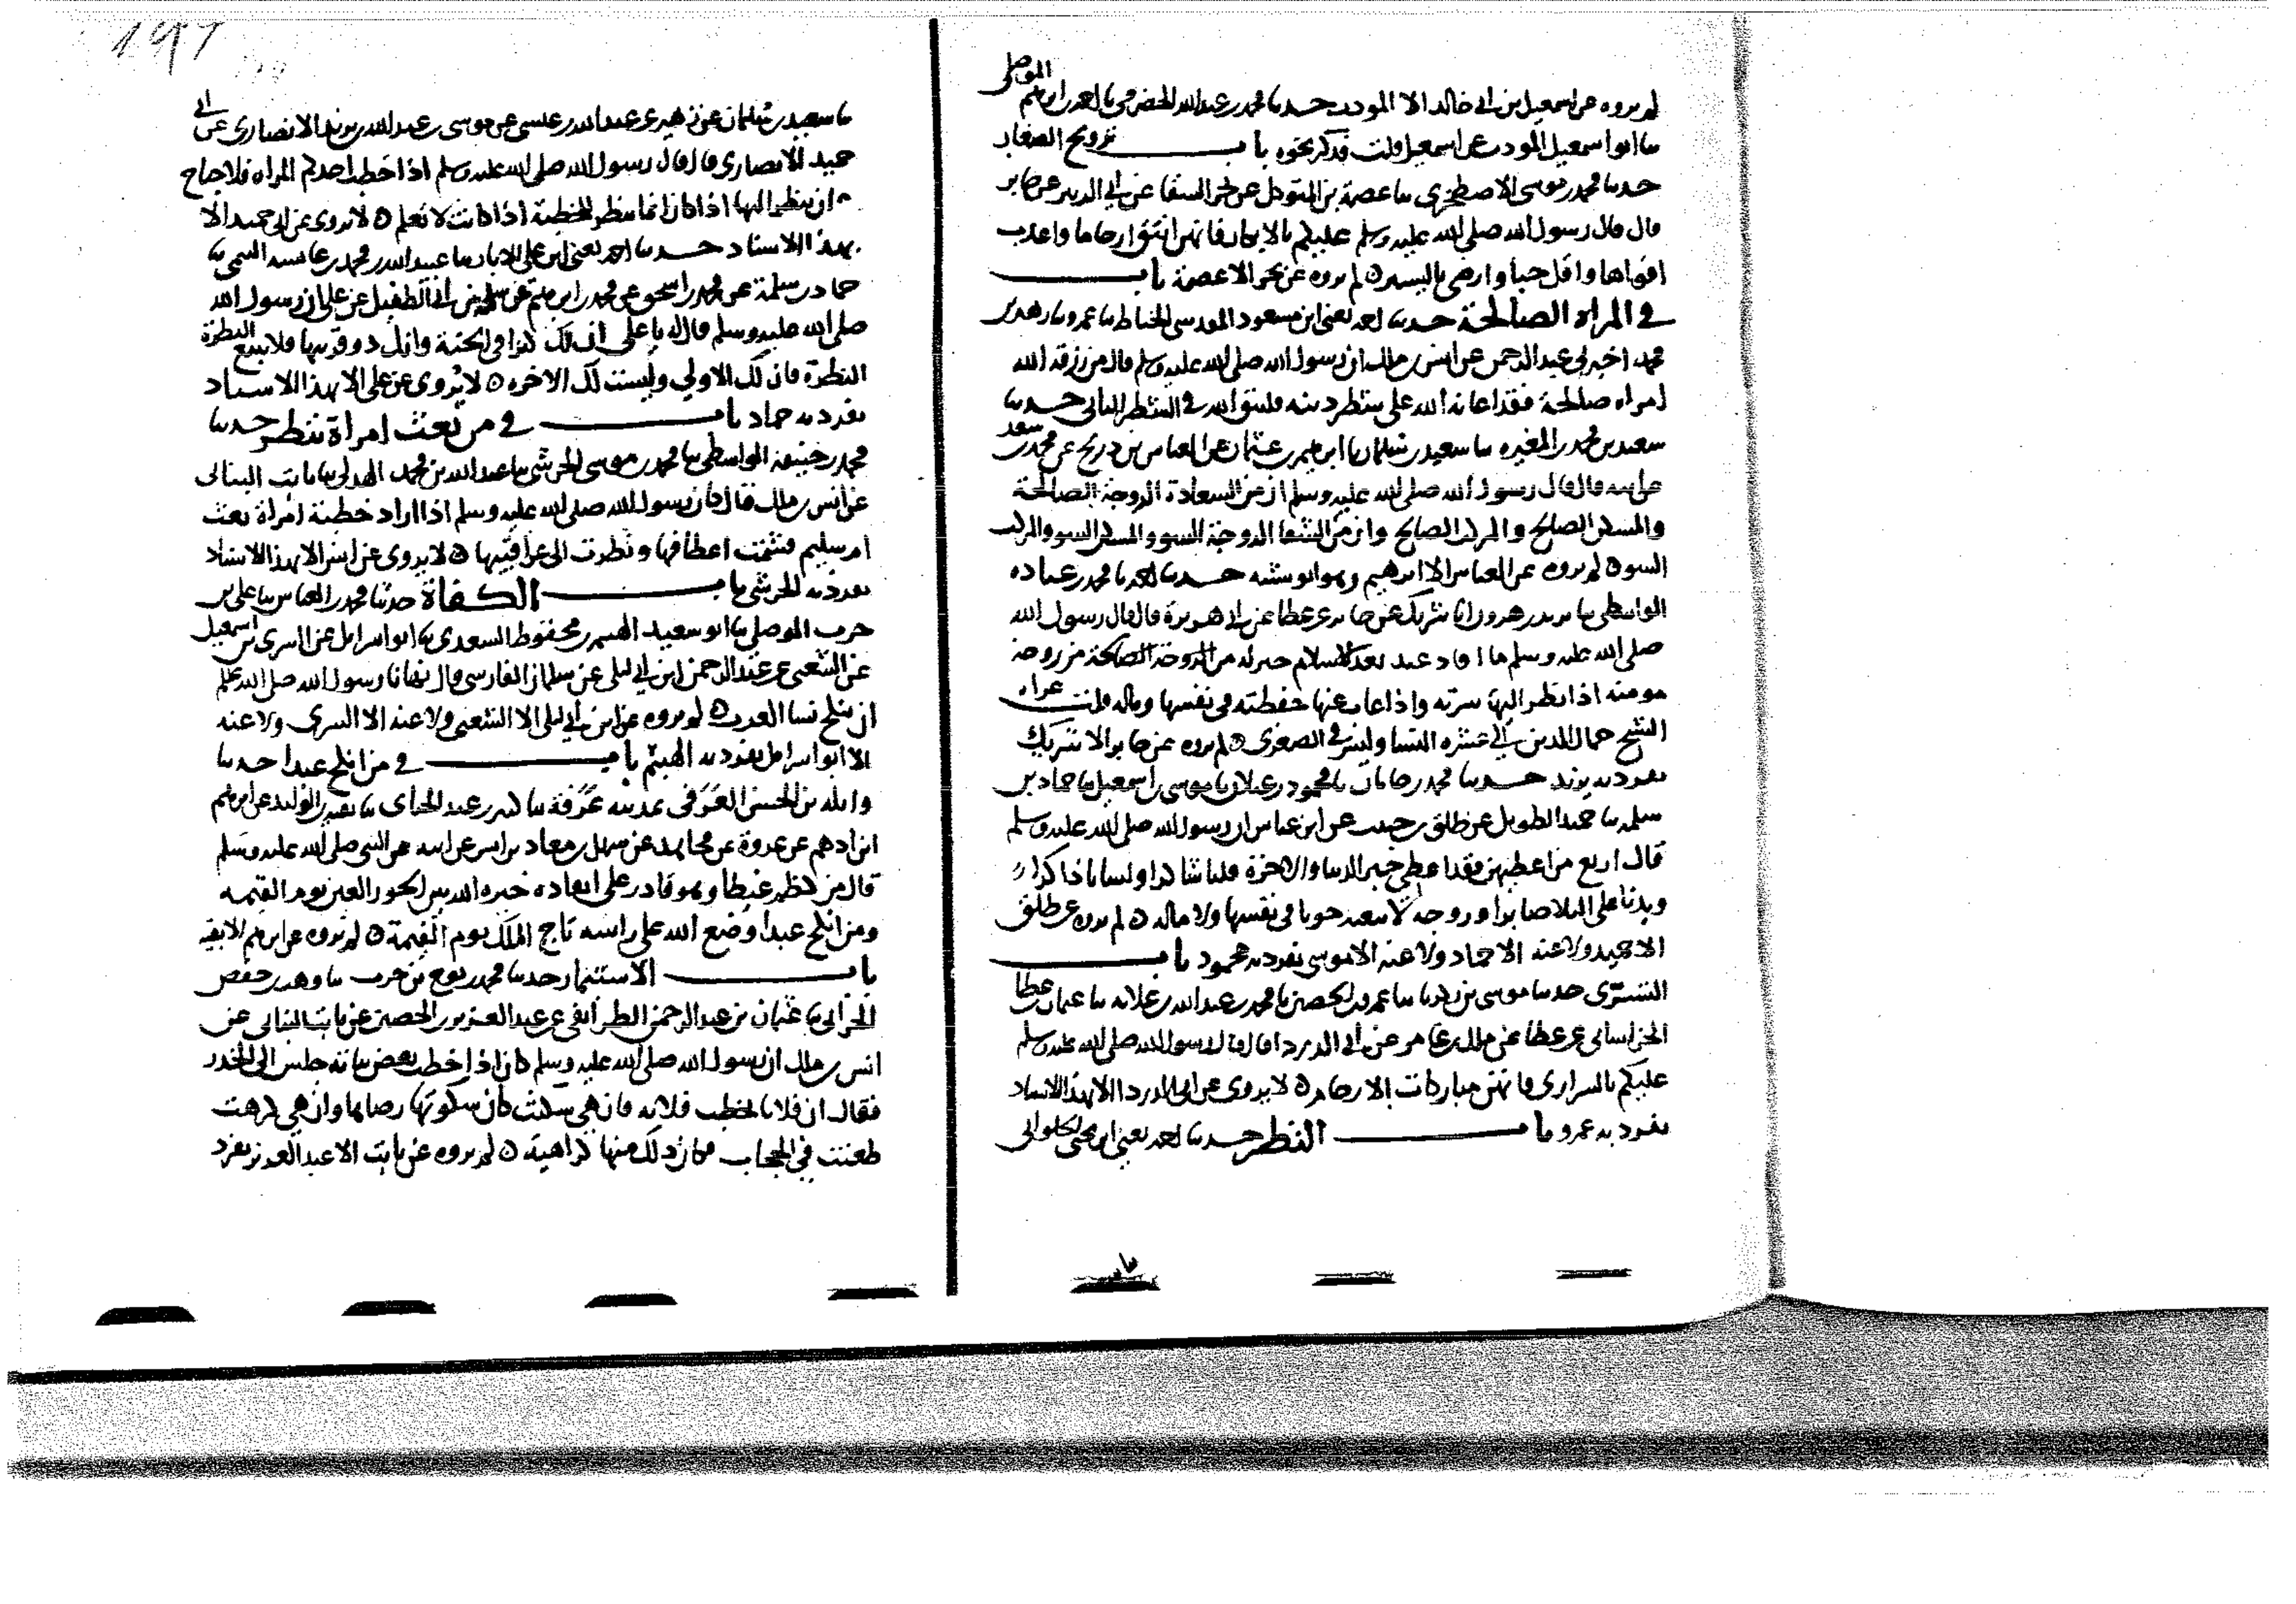 الموصلي
لم يروه عن اسمعيل بن ابي خالد الا المودب حدثنا محمد بن عبد الله الحضرمي نا احمد بن ابرهيم
نا ابو اسمعيل المودب عن اسمعيل قلت فذكر نحوه باب تزويج الصغار
حدثنا محمد بن موسى الاصطخري نا عصمة بن المتوكل عن بحر السقا عن ابي الزبير عن جابر
قال قال رسول الله صلى الله عليه وسلم عليكم بالابكار فانهن انتق ارحاما واعذب
افواها واقل خبا وارضى باليسير لم يروه عن بحر الا عصمة باب
في المراه الصالحة حدثنا احمد يعني ابن مسعود المقدسي الخياط نا عمرو نا زهير بن
محمد اخبرني عبد الرحمن عن انس بن ملك ان رسول الله صلى الله عليه وسلم قال من رزقه الله
امراه صالحة فقد اعانه الله على شطر دينه فليتق الله في الشطر الباقي حدثنا
سعيد بن محمد بن المغيره نا سعيد بن سليمان نا ابرهيم بن عثمان عن العباس بن ذريح عن محمد بن سعد
عن ابيه قال قال رسول الله صلى الله عليه وسلم ان من السعادة الزوجة الصالحة
والمسكن الصالح والمركب الصالح وان من الشقا الزوجة السو والمسكن السو والمركب
السو لم يروه عن العباس الا ابرهيم وهو ابو شيبه حدثنا احمد نا محمد بن عباده
الواسطي نا يزيد بن هرون انا شريك عن جابر عن عطا عن ابي هريرة قال قال رسول الله
صلى الله عليه وسلم ما افاد عبد بعد الاسلام خير له من الزوجة الصالحة من زوجة
مومنه اذا نظر اليها سرته واذا غاب عنها حفظته في نفسها وماله قلت عزاه
الشيخ جمال الدين الى عشره النسا وليس في الصغرى لم يروه عن جابر الا شريك
تفرد به يزيد حدثنا محمد بن جابان نا محمود بن غيلان نا موسى بن اسمعيل نا حماد بن
سلمه نا حميد الطويل عن طلق بن حبيب عن ابن عباس ان رسول الله صلى الله عليه وسلم
قال اربع من اعطيهن فقد اعطي خير الدنيا والاخرة قلبا شاكرا ولسانا ذاكرا
وبدنا على البلا صابرا وزوجه لا تبغيه حوبا في نفسها ولا ماله لم يروه عن طلق
الا حميد ولا عنه الا حماد ولا عنه الا موسى تفرد به محمود باب
التسري حدثنا موسى بن زكريا نا عمرو بن الحصين نا محمد بن عبد الله بن علاثه نا عثمان بن عطا
الخراساني عن عطا عن ملك بن يخامر عن ابي الدردا قال قال رسول الله صلى الله عليه وسلم
عليكم بالسراري فانهن مباركات الارحام لا يروى عن ابي الدردا الا بهذا الاسناد
تفرد به عمرو باب النظر حدثنا احمد يعني ابن يحيى الحلواني
نا سعيد بن سليمان عن زهير عن عبد الله بن عيسى عن موسى بن عبد الله بن يزيد الانصاري عن ابي
حميد الانصاري قال قال رسول الله صلى الله عليه وسلم اذا خطب احدكم المراه فلا جناح
ان ينظر اليها اذا كان انما ينظر للخطبة اذا كانت لا تعلم لا يروى عن ابي حميد الا
بهذا الاسناد حدثنا احمد يعني ابن علي الابار نا عبيد الله بن محمد بن عايشه التيمي نا
حماد بن سلمة عن محمد بن اسحق عن محمد بن ابرهيم عن سلمه بن ابي الطفيل عن علي ان رسول الله
صلى الله عليه وسلم قال له يا علي ان لك كنزا في الجنة وانك ذو قرنيها فلا تتبع النظرة
النظرة فان لك الاولى وليست لك الاخره لا يروى عن علي الا بهذا الاسناد
تفرد به حماد باب في من بعث امراة تنظر حدثنا
محمد بن حنيفه الواسطي نا محمد بن موسى الحرشي نا عبد الله بن محمد الهدلي نا ثابت البناني
عن انس بن ملك قال كان رسول الله صلى الله عليه وسلم اذا اراد خطبة امراة بعث
ام سليم فشمت اعطافها ونظرت الى عراقيبها لا يروى عن انس الا بهذا الاسناد
تفرد به الحرشي باب الكفاة حدثنا محمد بن العباس نا علي بن
حرب الموصلي نا ابو سعيد الهيثم بن محفوظ السعدي نا ابو اسرايل عن السري بن اسمعيل
عن الشعبي عن عبد الرحمن ابن ابي ليلى عن سلمان الفارسي قال نهانا رسول الله صلى الله عليه وسلم
ان ننكح نسا العرب لم يروه عن ابن ابي ليلى الا الشعبي ولا عنه الا السري ولا عنه
الا ابو اسرايل تفرد به الهيثم باب في من انكح عبدا حدثنا
واثله بن الحسن العَرَقي بمدينه عَرقة نا كثير بن عبيد الحذاي نا بقيه بن الوليد عن ابرهيم
ابن ادهم عن عروة عن مجاهد عن سهل بن معاذ بن انس عن ابيه عن النبي صلى الله عليه وسلم
قال من كظم غيظا وهو قادر على انفاذه خيره الله من الحور العين يوم القيمه
ومن انكح عبدا وضع الله على راسه تاج الملك يوم القيمة لم يروه عن ابرهيم الا بقيه
باب الاستئمار حدثنا محمد بن نوح بن حرب نا وهب بن حفص
الحراني نا عثمان بن عبد الرحمن الطرائفي عن عبد العزيز بن الحصين عن ثابت البناني عن
انس بن ملك ان رسول الله صلى الله عليه وسلم كان اذا خطب بعض بناته جلس الى الخدر
فقال ان فلانا يخطب فلانه فان هي سكتت كان سكوتها رضاها وان هي كرهت
طعنت في الحجاب فكان ذلك منها كراهية لم يروه عن ثابت الا عبد العزيز تفرد